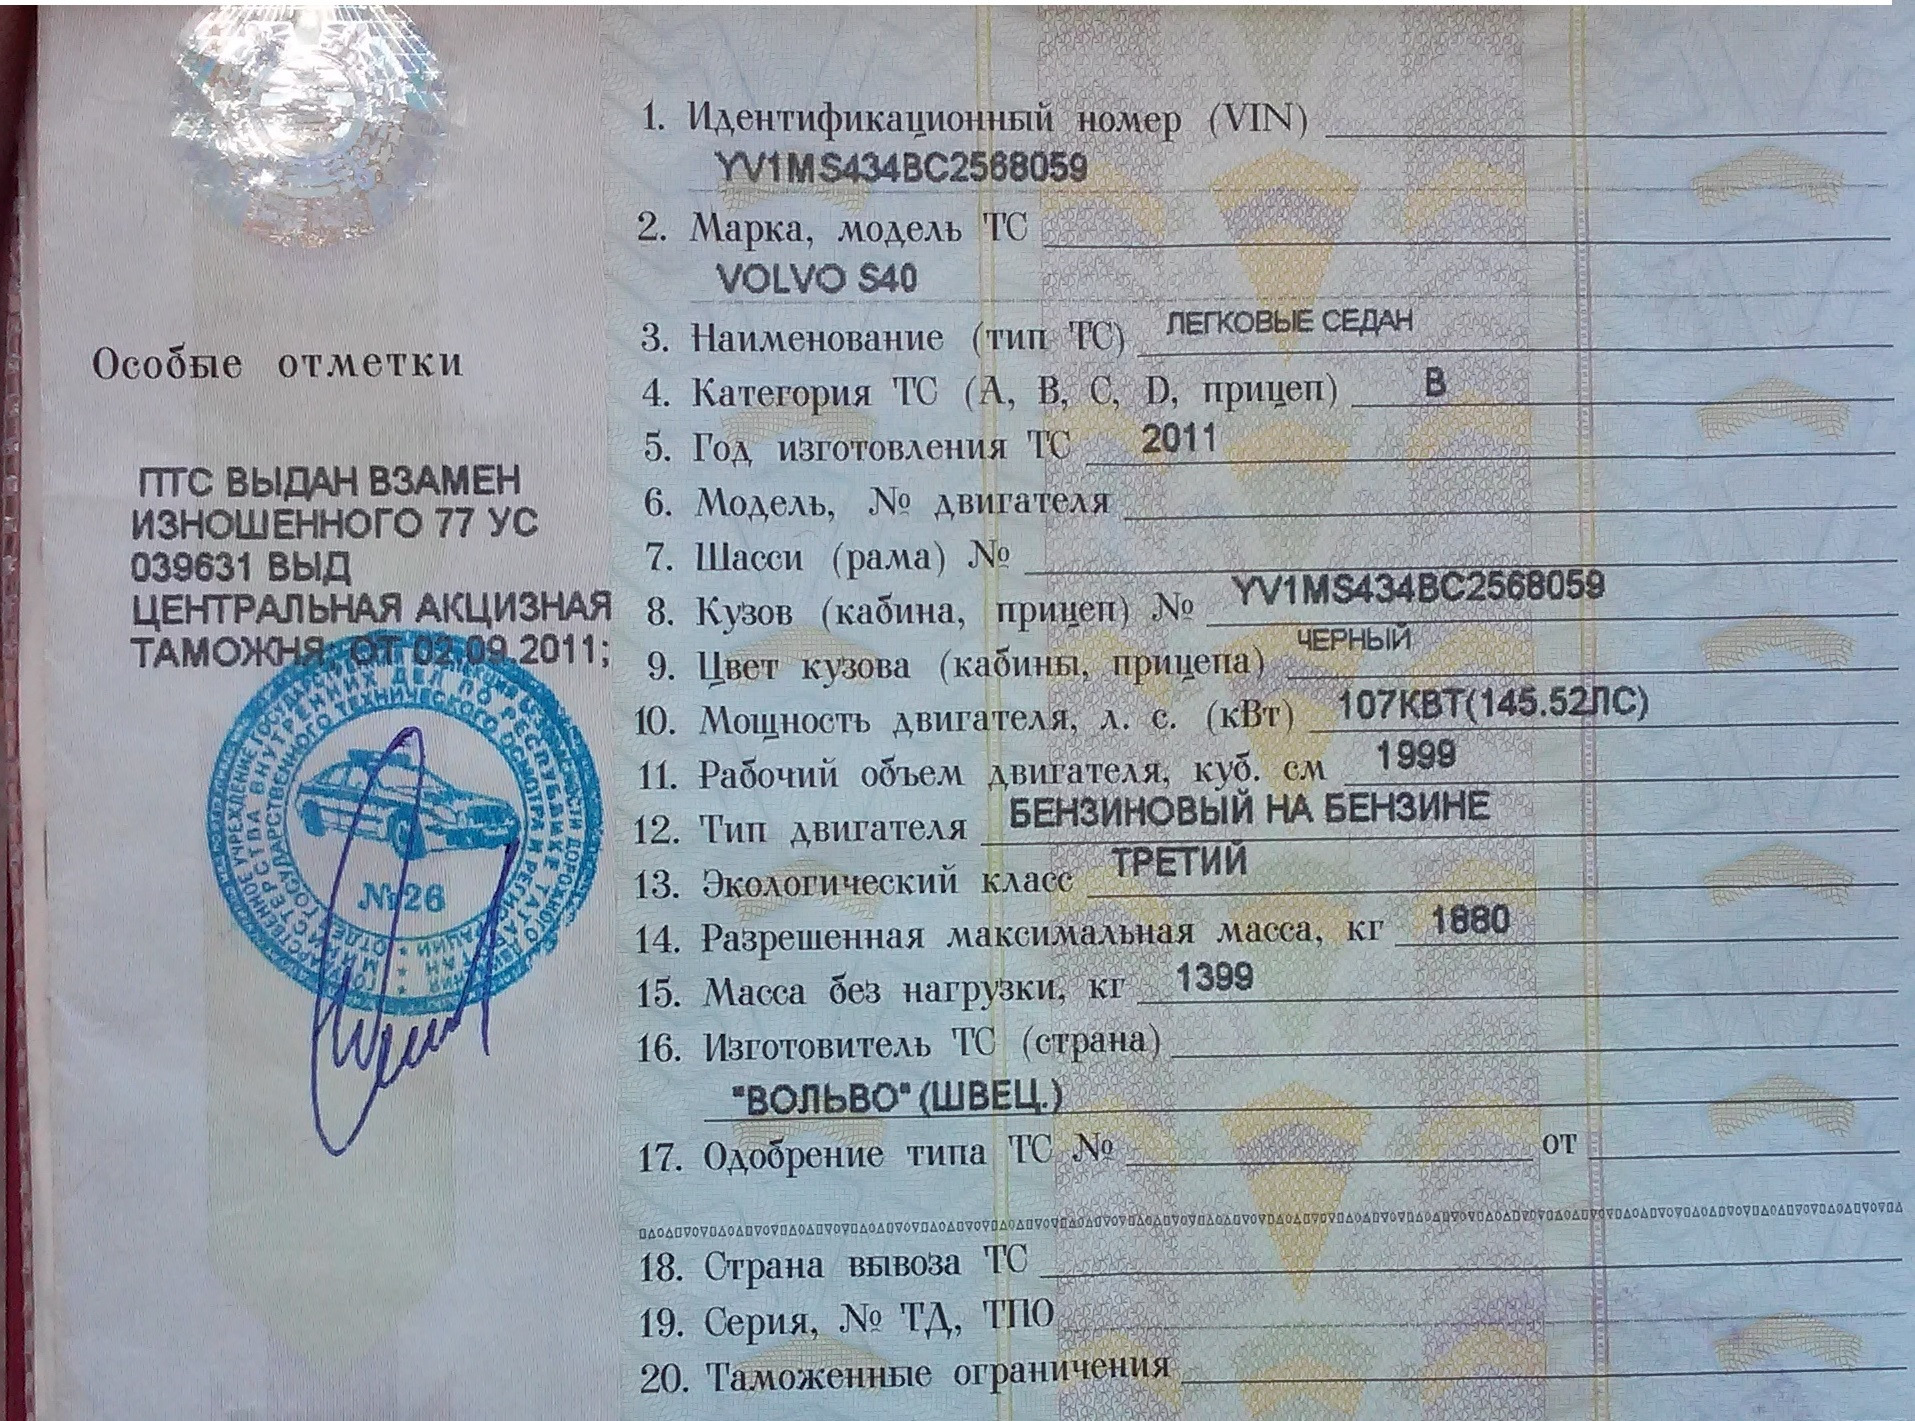 Особые отметки
ПТС ВЫДАН ВЗАМЕН
ИЗНОШЕННОГО 77 УС
039631 ВЫД
ЦЕНТРАЛЬНАЯ АКЦИЗНАЯ
ТАМОЖНЯ; ОТ 02.09.2011;
№26
1. Идентификационный номер (VIN)
YV1MS434BC2568059
2. Марка, модель ТС
VOLVO S40
3. Наименование (тип ТС) ЛЕГКОВЫЕ СЕДАН
4. Категория ТС (А, В, С, D, прицеп) В
5. Год изготовления ТС 2011
6. Модель, № двигателя
7. Шасси (рама) №
8. Кузов (кабина, прицеп) № YV1MS434BC2568059
9. Цвет кузова (кабины, прицепа) ЧЕРНЫЙ
10. Мощность двигателя, л. с. (кВт) 107КВТ(145.52ЛС)
11. Рабочий объем двигателя, куб. см 1999
12. Тип двигателя БЕНЗИНОВЫЙ НА БЕНЗИНЕ
13. Экологический класс ТРЕТИЙ
14. Разрешенная максимальная масса, кг 1880
15. Масса без нагрузки, кг 1399
16. Изготовитель ТС (страна)
"ВОЛЬВО" (ШВЕЦ.)
17. Одобрение типа ТС № от
18. Страна вывоза ТС
19. Серия, № ТД, ТПО
20. Таможенные ограничения